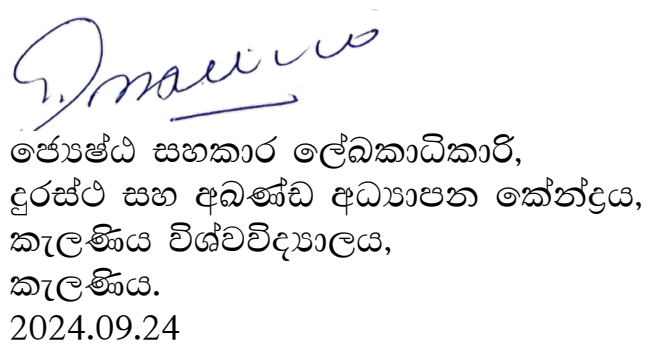 ජ්‍යෙෂ්ඨ සහකාර ලේඛකාධිකාරි,
දුරස්ථ සහ අඛණ්ඩ අධ්‍යාපන කේන්ද්‍රය,
කැලණිය විශ්වවිද්‍යාලය,
කැලණිය.
2024.09.24